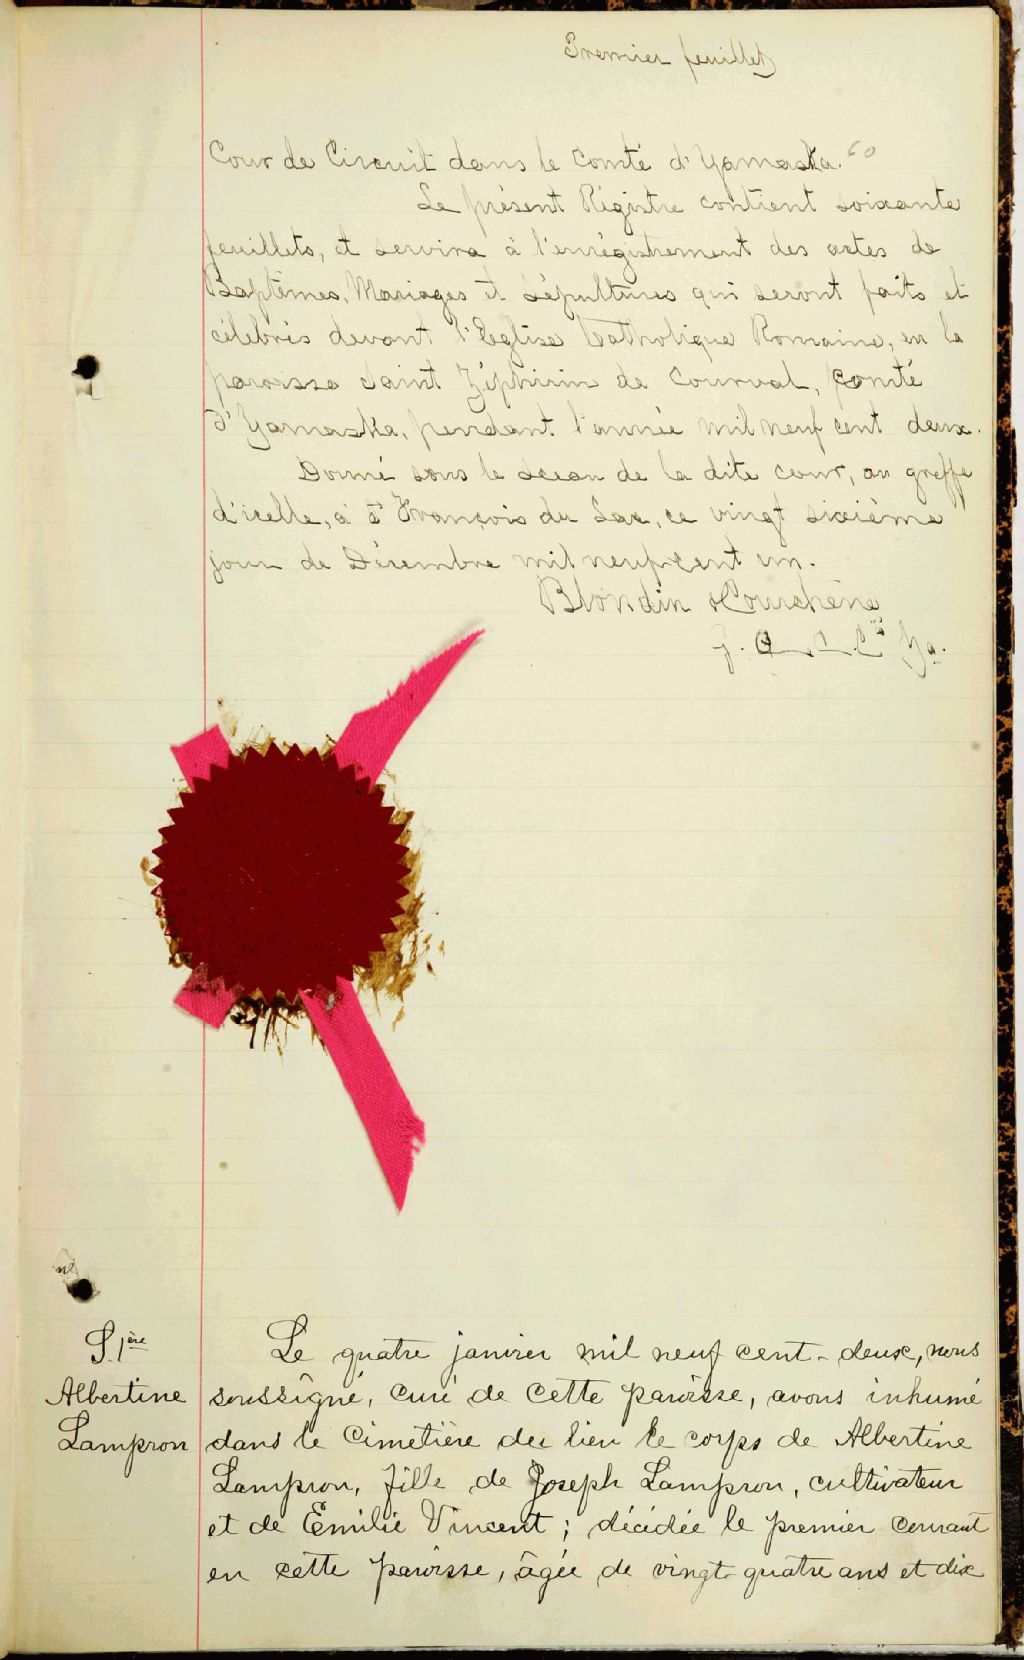 Premier feuillet
Cour de Circuit dans le Comté d'Yamaska. 60
Le présent Régistre contient soixante
feuillets, et servira à l'enrégistrement des actes de
Baptêmes, Mariages et Sépultures qui seront faits et
célébrés devant l'Eglise Catholique Romaine, en la
paroisse Saint Zéphirin de Courval, Comté
d'Yamaska, pendant l'année mil neuf cent deux.
Donné sous le sceau de la dite cour, au greffe
d'icelle, à St François du Lac, ce vingt sixième
jour de Décembre mil neuf cent un.
Blondin & Courchène
Ya.
S. 1ère
Albertine
Lampron
Le quatre janvier mil neuf cent-deux, nous
soussigné, curé de cette paroisse, avons inhumé
dans le cimetière du lieu le corps de Albertine
Lampron, fille de Joseph Lampron, cultivateur
et de Emilie Vincent; décédée le premier courant
en cette paroisse, âgée de vingt-quatre ans et dix